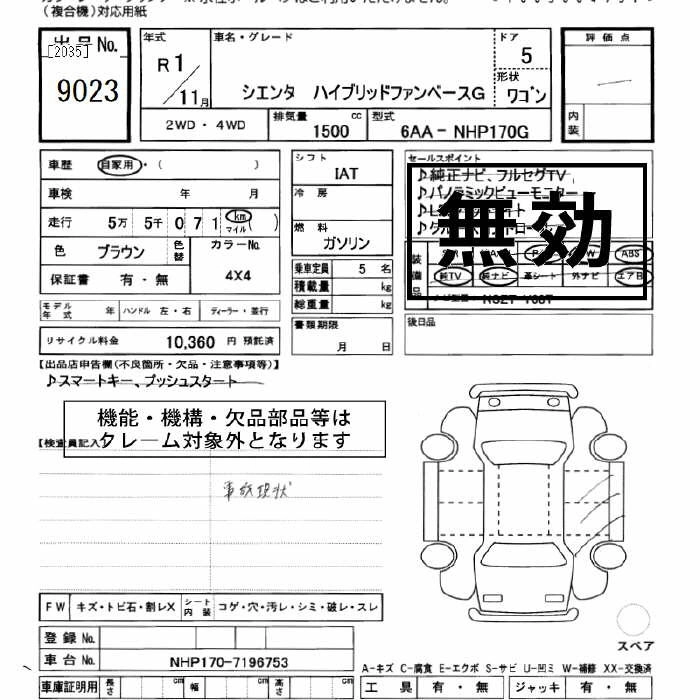 (複合機)対応用紙
出品No.
[2035]
9023
年式
R1/11月
車名・グレード
シエンタ ハイブリッドファンベースG
ドア
5
形状
ワゴン
評価点
内装
2WD・4WD
排気量
1500 cc
型式
6AA-NHP170G
車歴
自家用・( )
車検 年 月
走行
5万 5千 0 7 1 km マイル( )
色
ブラウン
色替
カラーNo.
4X4
保証書 有・無
シフト
IAT
冷房
燃料
ガソリン
乗車定員 5 名
積載量 kg
総重量 kg
書類期限
月 日
セールスポイント
♪純正ナビ、フルセグTV、
♪パノラミックビューモニター
無効
装備品
ABS
純TV
純ナビ
革シート
外ナビ
エアB
後日品
モデル年式 年
ハンドル 左・右
ディーラー・並行
リサイクル料金 10,360 円 預託済
【出品店申告欄(不良箇所・欠品・注意事項等)】
♪スマートキー、プッシュスタート
機能・機構・欠品部品等は
クレーム対象外となります
【検査員記入
事故現状
FW
キズ・トビ石・割レX
シート内装
コゲ・穴・汚レ・シミ・破レ・スレ
登録No.
車台No.
NHP170-7196753
スペア
A-キズ C-腐食 E-エクボ S-サビ U-凹ミ W-補修 XX-交換済
車庫証明用
長さ cm
幅 cm
高さ cm
工具 有・無
ジャッキ 有・無